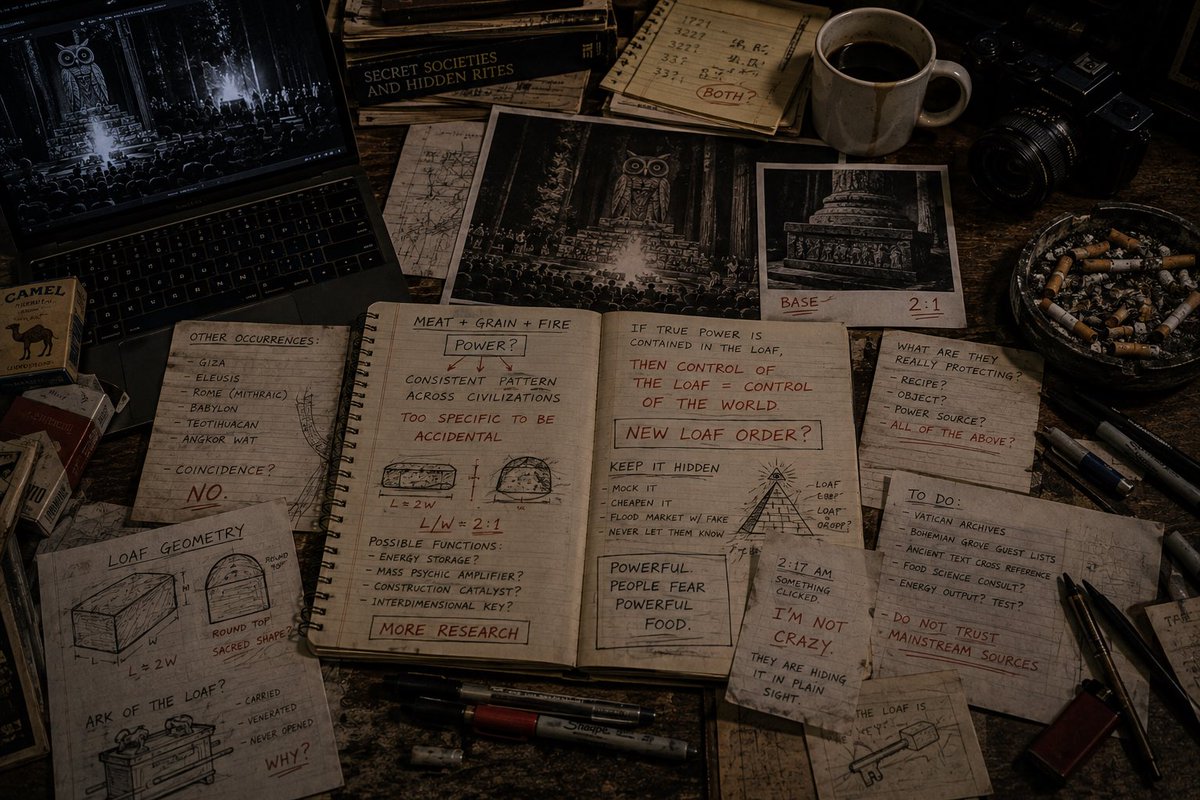 SECRET SOCIETIES
AND HIDDEN RITES
177?
322?
322?
33?
BOTH?
BASE
2:1
CAMEL
OTHER OCCURRENCES:
- GIZA
- ELEUSIS
- ROME (MITHRAIC)
- BABYLON
- TEOTIHUACAN
- ANGKOR WAT
- COINCIDENCE?
NO.
MEAT + GRAIN + FIRE
POWER?
CONSISTENT PATTERN
ACROSS CIVILIZATIONS
TOO SPECIFIC TO BE
ACCIDENTAL
L = 2W
L/W = 2:1
POSSIBLE FUNCTIONS:
- ENERGY STORAGE?
- MASS PSYCHIC AMPLIFIER?
- CONSTRUCTION CATALYST?
- INTERDIMENSIONAL KEY?
MORE RESEARCH
IF TRUE POWER IS
CONTAINED IN THE LOAF,
THEN CONTROL OF
THE LOAF = CONTROL
OF THE WORLD.
NEW LOAF ORDER?
KEEP IT HIDDEN
- MOCK IT
- CHEAPEN IT
- FLOOD MARKET W/ FAKE
- NEVER LET THEM KNOW
LOAF
LOAF
POWERFUL.
PEOPLE FEAR
POWERFUL
FOOD.
WHAT ARE THEY
REALLY PROTECTING?
- RECIPE?
- OBJECT?
- POWER SOURCE?
- ALL OF THE ABOVE?
TO DO:
- VATICAN ARCHIVES
- BOHEMIAN GROVE GUEST LISTS
- ANCIENT TEXT CROSS REFERENCE
- FOOD SCIENCE CONSULT?
- ENERGY OUTPUT? TEST?
- DO NOT TRUST
MAINSTREAM SOURCES
2:17 AM
SOMETHING
CLICKED.
I'M NOT
CRAZY.
THEY ARE HIDING
IT IN PLAIN
SIGHT.
LOAF GEOMETRY
H
W
L ≈ 2W
ROUND
ROUND TOP
SACRED SHAPE?
ARK OF THE LOAF?
- CARRIED
- VENERATED
- NEVER OPENED
WHY?
THE LOAF IS
KEY
Sharpie